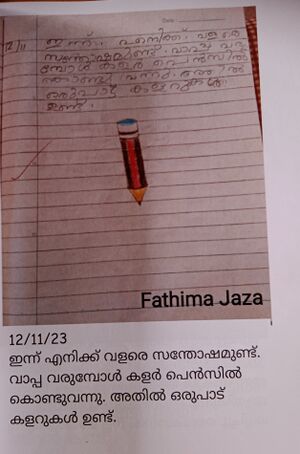 Date
12/11
ഇന്ന് എനിക്ക് വളരെ
സന്തോഷമുണ്ട് വാപ്പ വരു
മ്പോൾ കളർ പെൻസിൽ
കൊണ്ടു വന്നു. അതിൽ
ഒരുപാട് കളറുകൾ
ഉണ്ട്.
Fathima Jaza
12/11/23
ഇന്ന് എനിക്ക് വളരെ സന്തോഷമുണ്ട്.
വാപ്പ വരുമ്പോൾ കളർ പെൻസിൽ
കൊണ്ടുവന്നു. അതിൽ ഒരുപാട്
കളറുകൾ ഉണ്ട്.